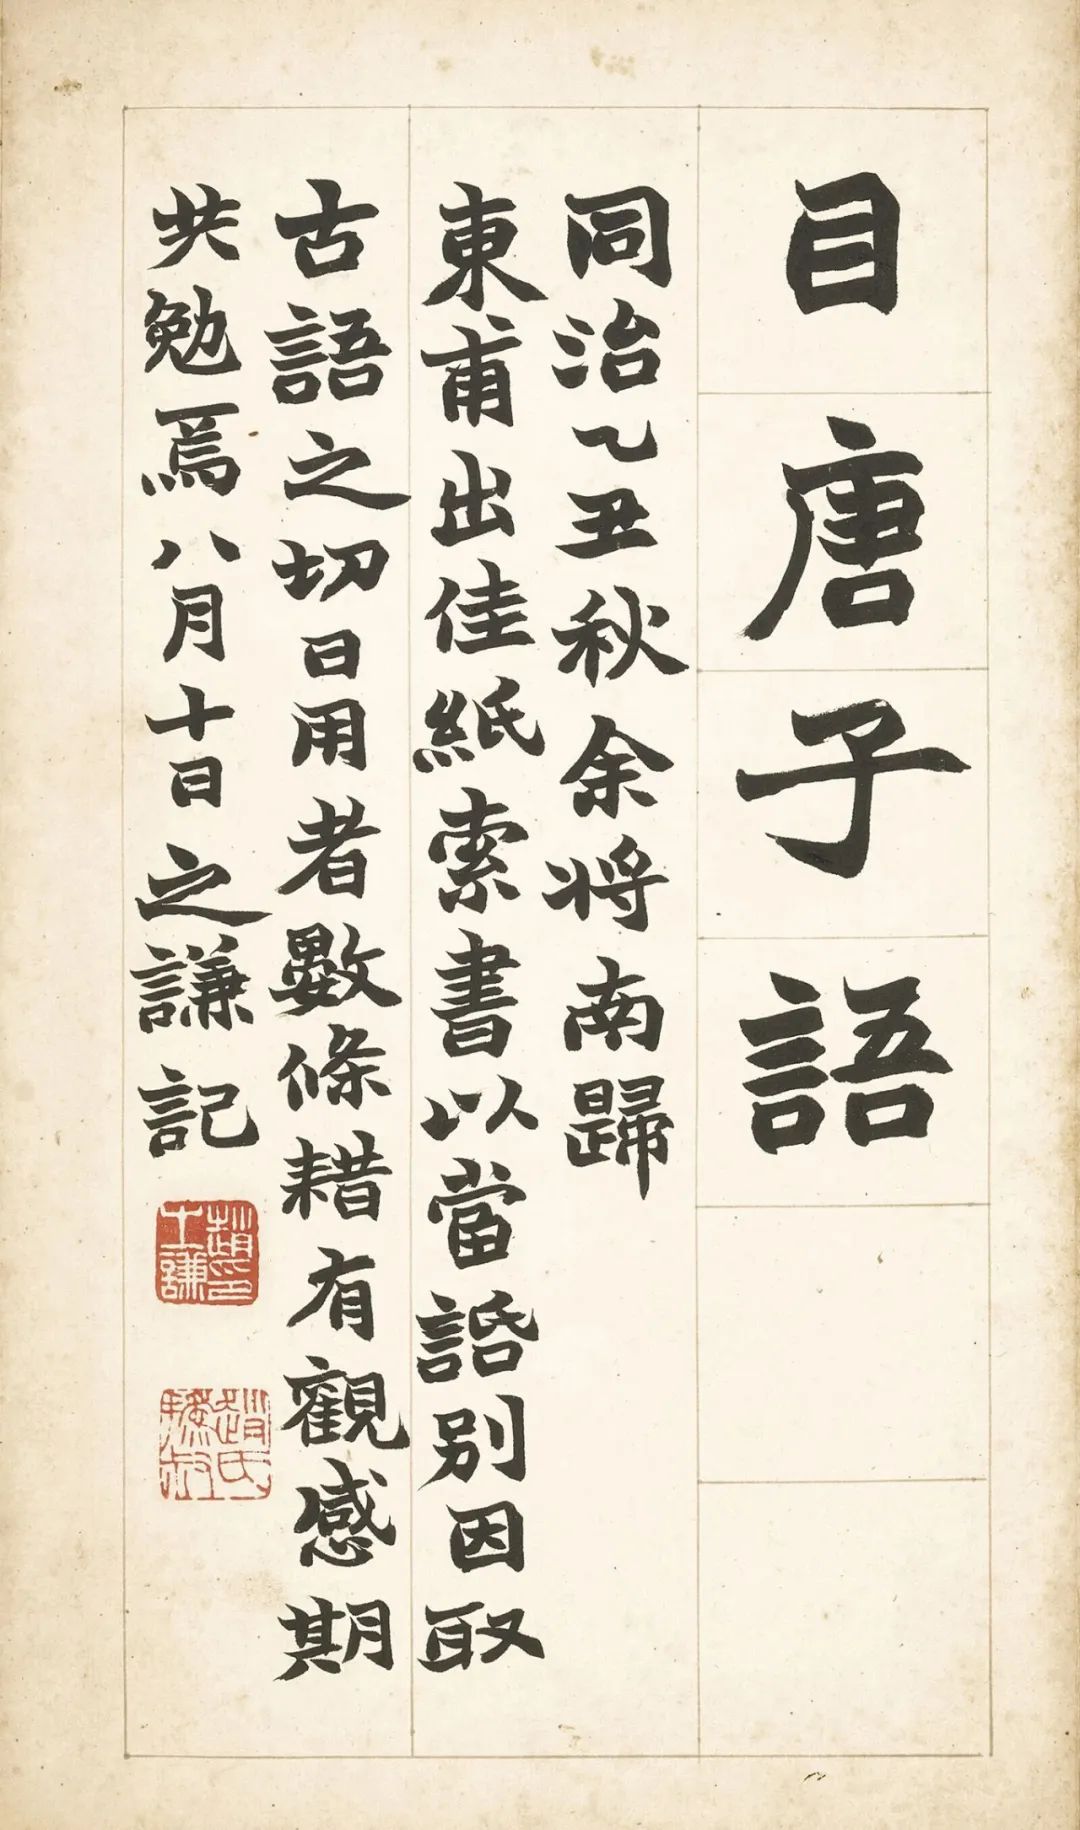 目唐子語
同治乙丑秋余将南歸
東甫出佳紙索書以當話別因取
古語之切日用者數條耤有觀感期
共勉焉八月十日之謙記
趙之謙印